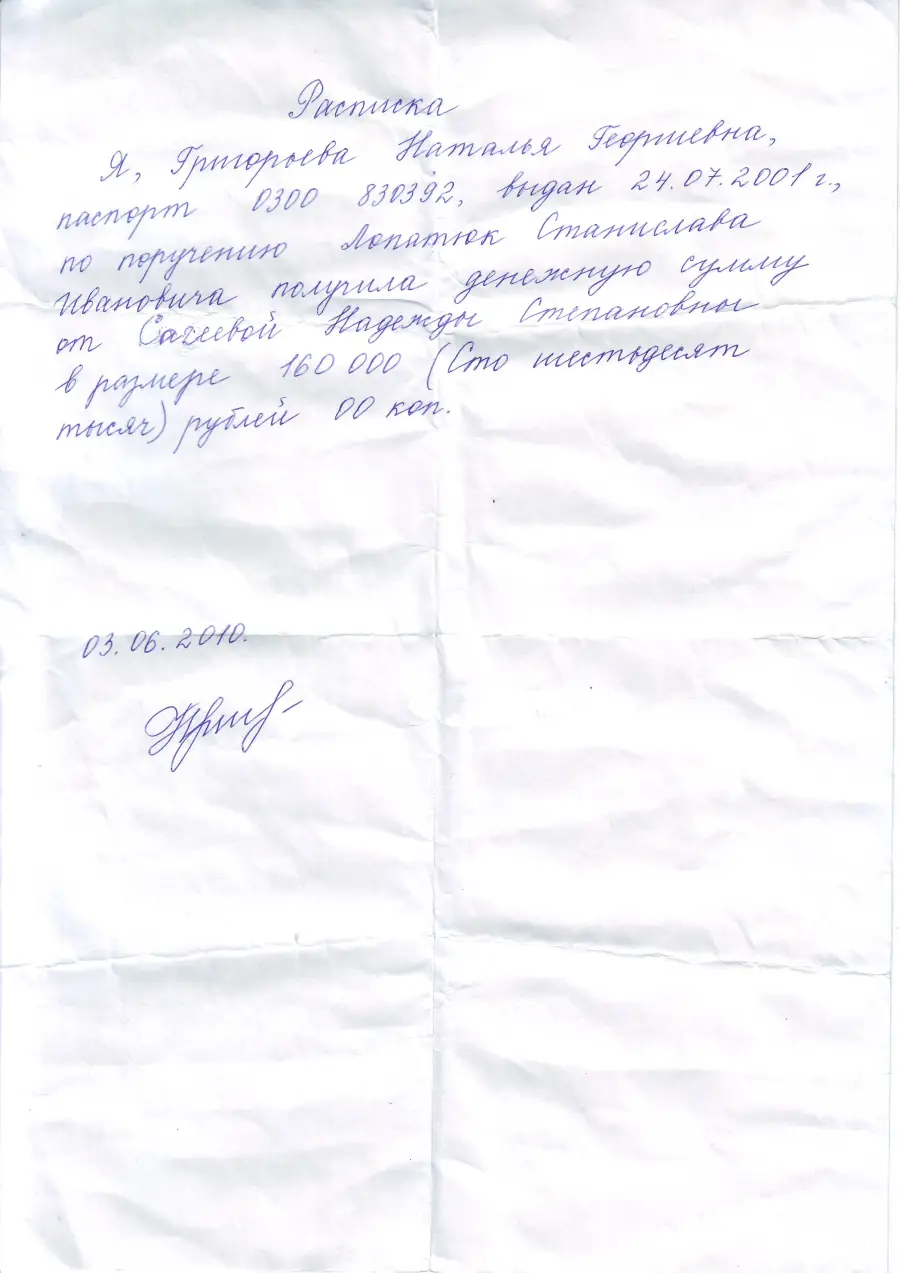 Расписка
Я, Григорьева Наталья Георгиевна,
паспорт 0300 830392, выдан 24.07.2001 г.,
по поручению Лопатюк Станислава
Ивановича получила денежную сумму
от Надежды Степановны
в размере 160 000 (Сто шестьдесят
тысяч) рублей 00 коп.
03.06.2010.